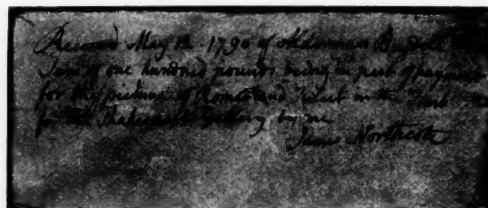 Received May 12. 1790 of Alderman Boydell the
Sum of one hundred pounds being in part of payment
for the picture of Romeo and Juliet in the Tomb
for the Shakespeare Gallery by me
James Northcote